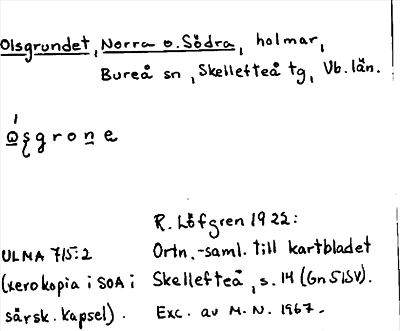 Olsgrundet, Norra o. Södra, holmar,
Bureå sn, Skellefteå tg, Vb. län.
R. Löfgren 1922:
ULMA 715:2
Ortn.-saml. till kartbladet
(xerokopia i SOA i
Skellefteå, s. 14 (Gn 51SV).
särsk. kapsel).
Exc. av M. N. 1967.